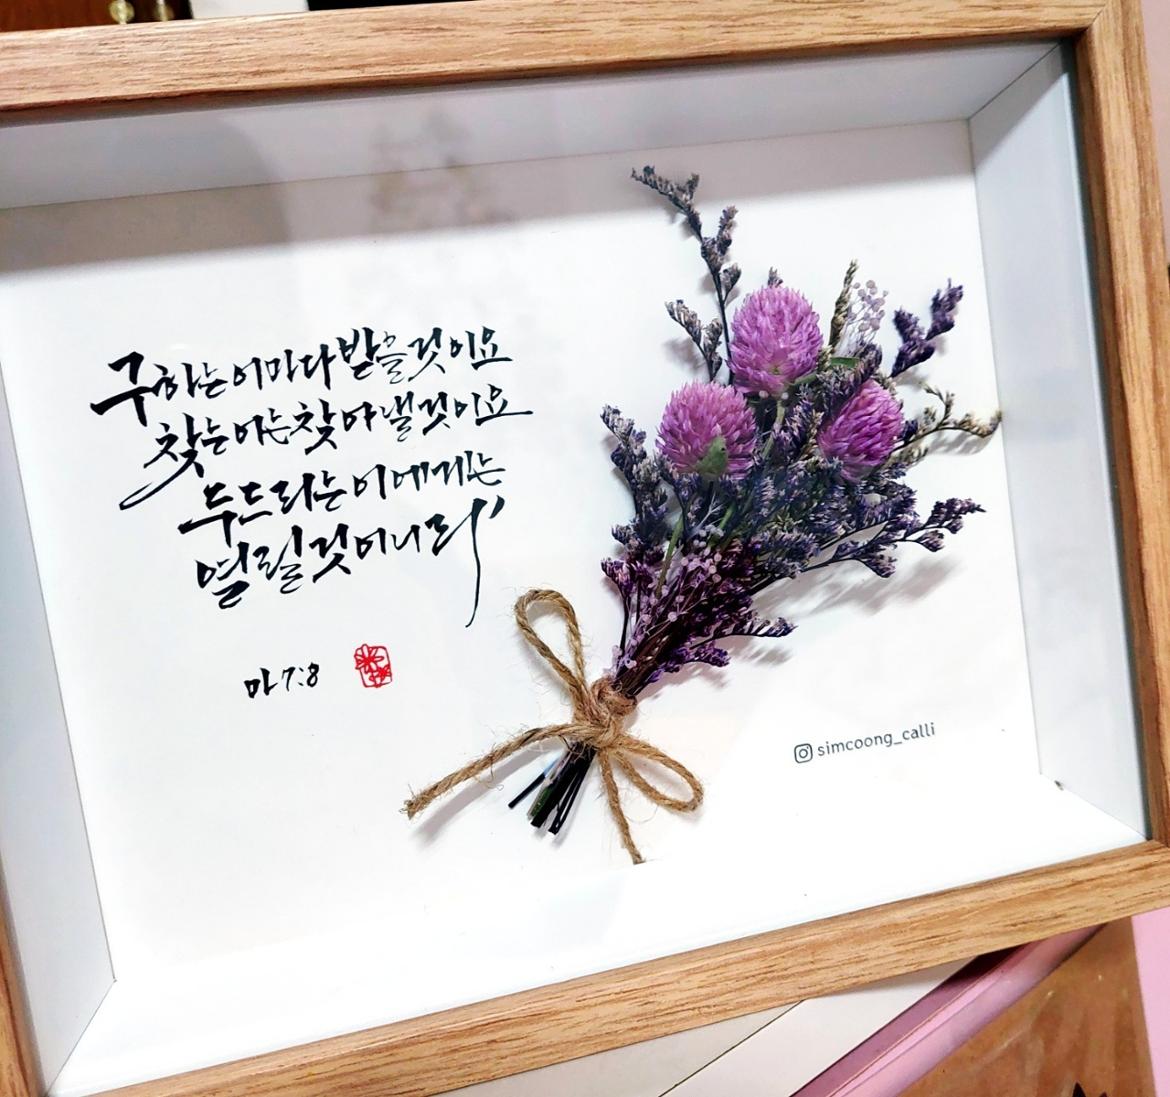 구하는이마다받을것이요
찾는이는찾아낼것이요
두드리는이에게는
열릴것이니라
마7:8
simcoong_calli